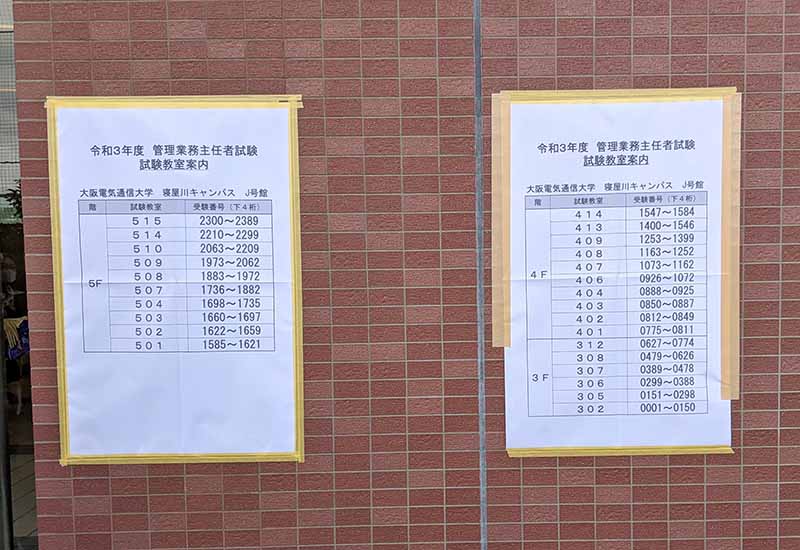 令和3年度 管理業務主任者試験
試験教室案内
大阪電気通信大学 寝屋川キャンパス J号館
階 試験教室 受験番号（下4桁）
5F
515 2300～2389
514 2210～2299
510 2063～2209
509 1973～2062
508 1883～1972
507 1736～1882
504 1698～1735
503 1660～1697
502 1622～1659
501 1585～1621
令和3年度 管理業務主任者試験
試験教室案内
大阪電気通信大学 寝屋川キャンパス J号館
階 試験教室 受験番号（下4桁）
4F
414 1547～1584
413 1400～1546
409 1253～1399
408 1163～1252
407 1073～1162
406 0926～1072
404 0888～0925
403 0850～0887
402 0812～0849
401 0775～0811
3F
312 0627～0774
308 0479～0626
307 0389～0478
306 0299～0388
305 0151～0298
302 0001～0150